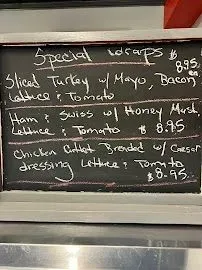 Special Wraps $ 8.95 ea
Sliced Turkey w/ Mayo, Bacon
Lettuce & Tomato
Ham & Swiss w/ Honey Must.
Lettuce & Tomato $ 8.95
Chicken Cutlet Breaded w/ Caesar
dressing Lettuce & Tomato
$ 8.95